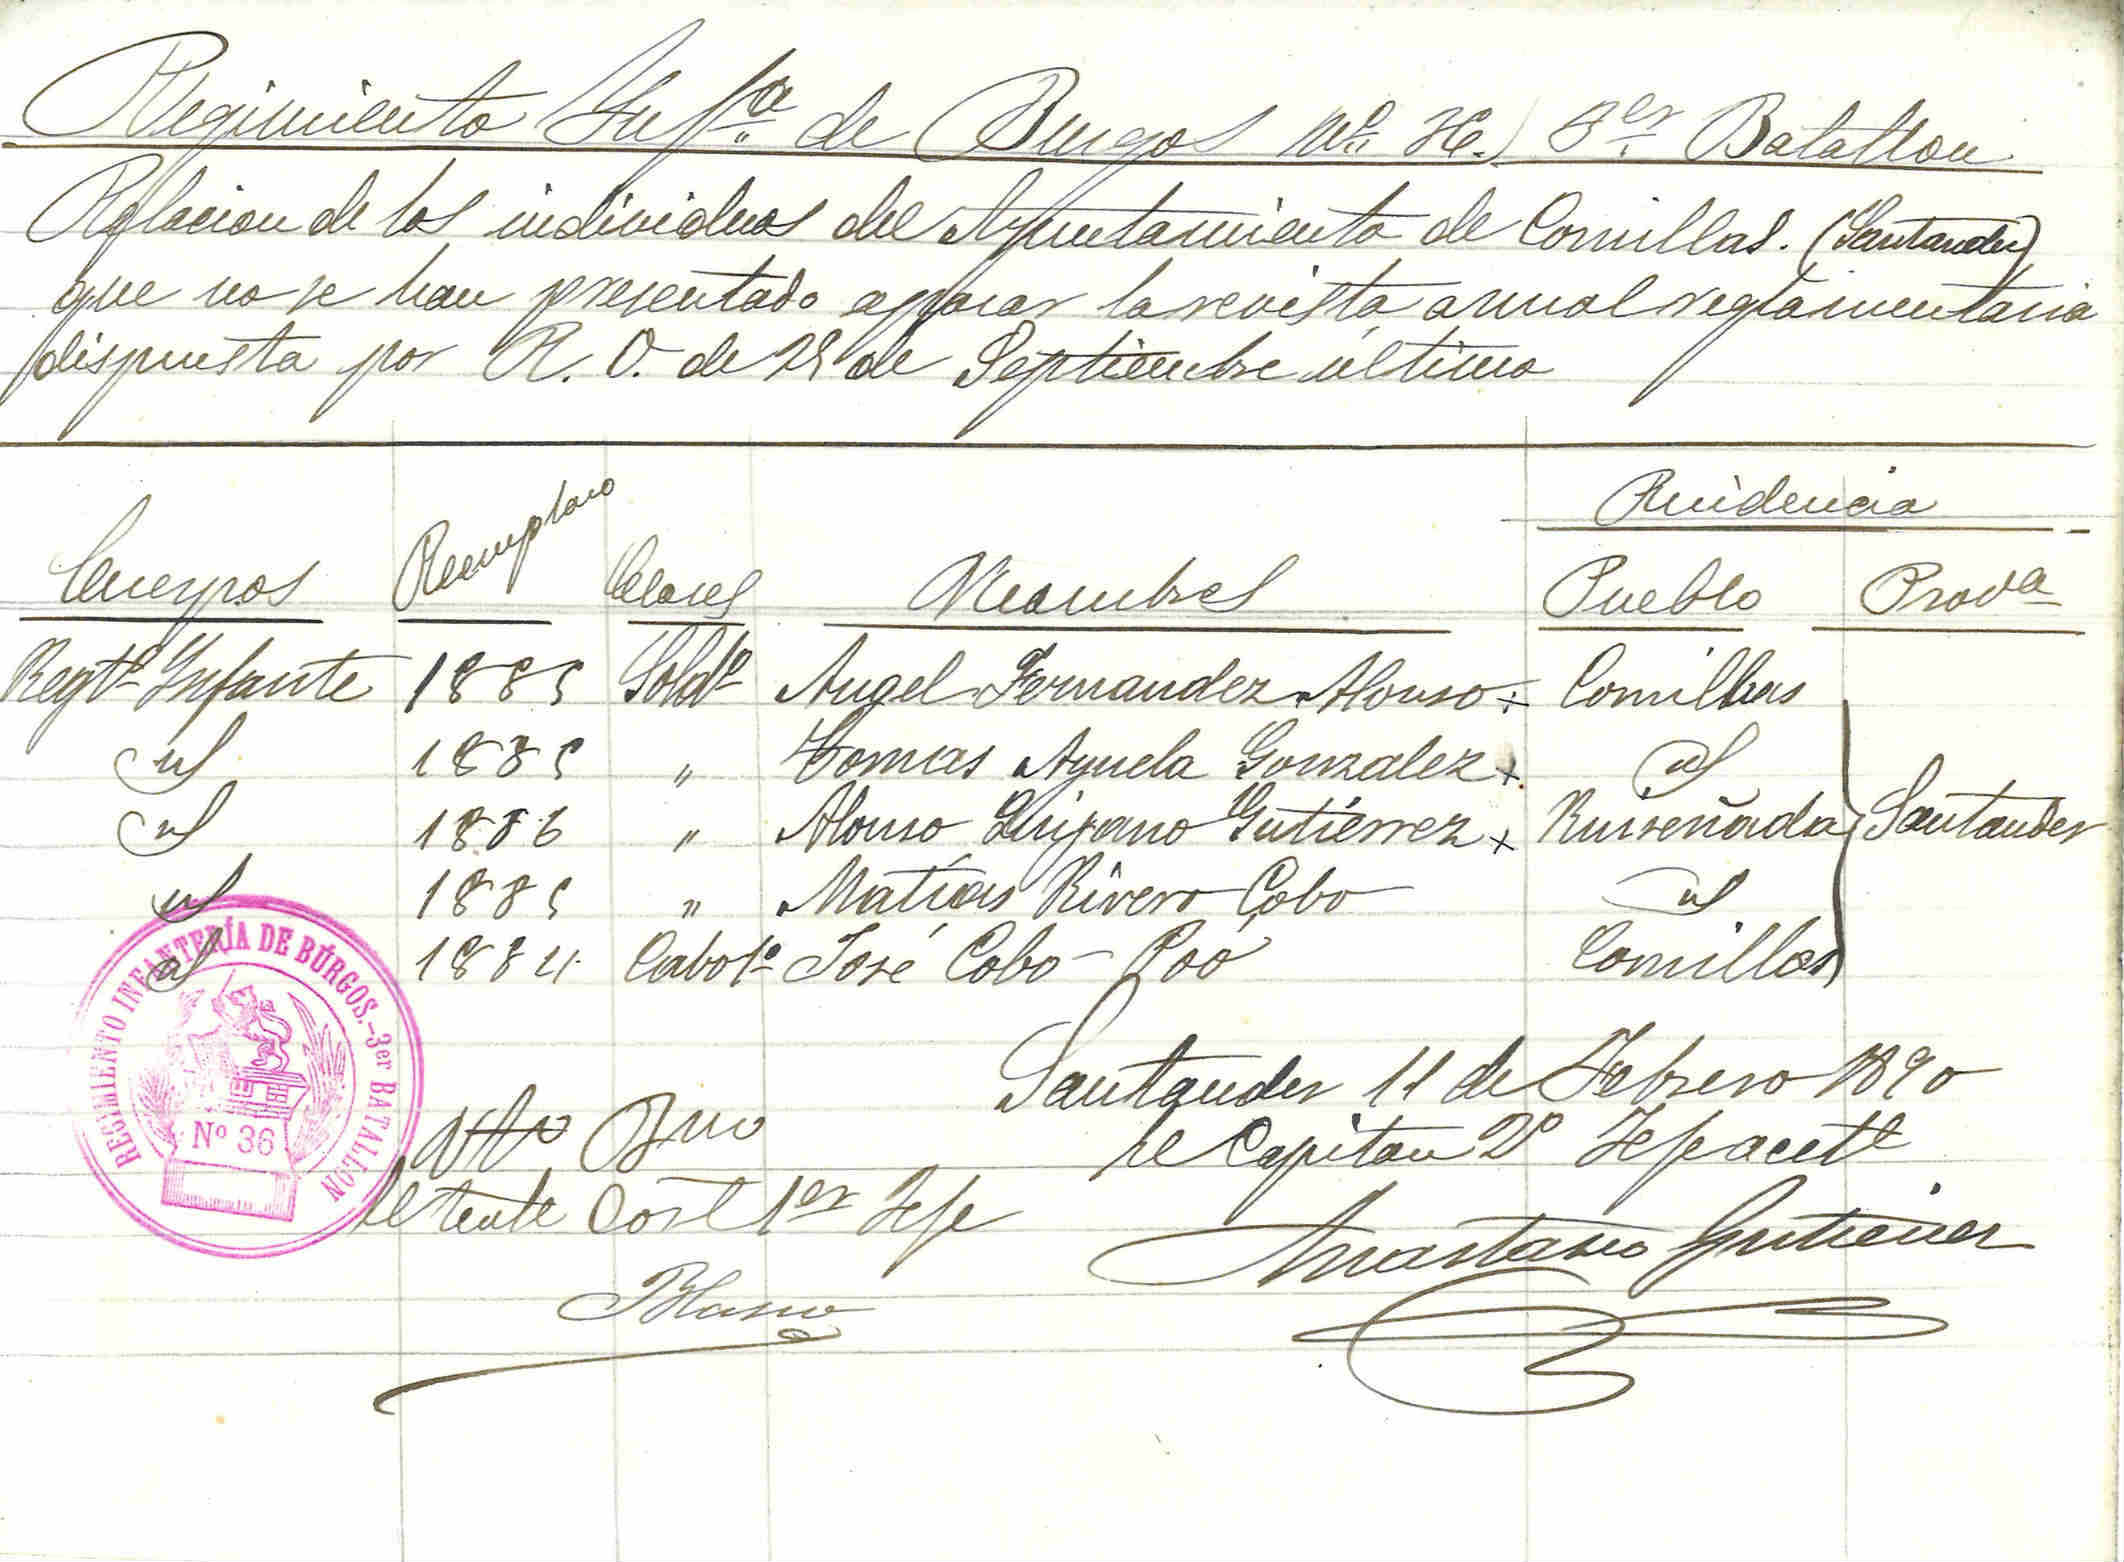 Regimiento Infª de Burgos nº 36. 3er Batallon
Relacion de los individuos del Ayuntamiento de Comillas. (Santander)
que no se han presentado a pasar la revista anual reglamentaria
dispuesta por R. O. de 25 de Septiembre último
Residencia
Cuerpos Reemplazo Clases Nombres Pueblo Provª
Regtº Infante 1885 Soldº Angel Fernandez Alonso Comillas
id 1885 " Tomas Ayuela Gonzalez id
id 1886 " Alonso Quijano Gutiérrez Ruiseñada Santander
id 1885 " Matías Rivero Cobo id
id 1884 Cabo 1º José Cobo Poó Comillas
Santander 11 de Febrero 1890
El Capitan 2º Jefe acctl
Anastasio Gutierrez
Vto Bno
El tente Corl 1er Jefe
Blasco
REGIMIENTO INFANTERÍA DE BÚRGOS.-3er BATALLON
Nº 36